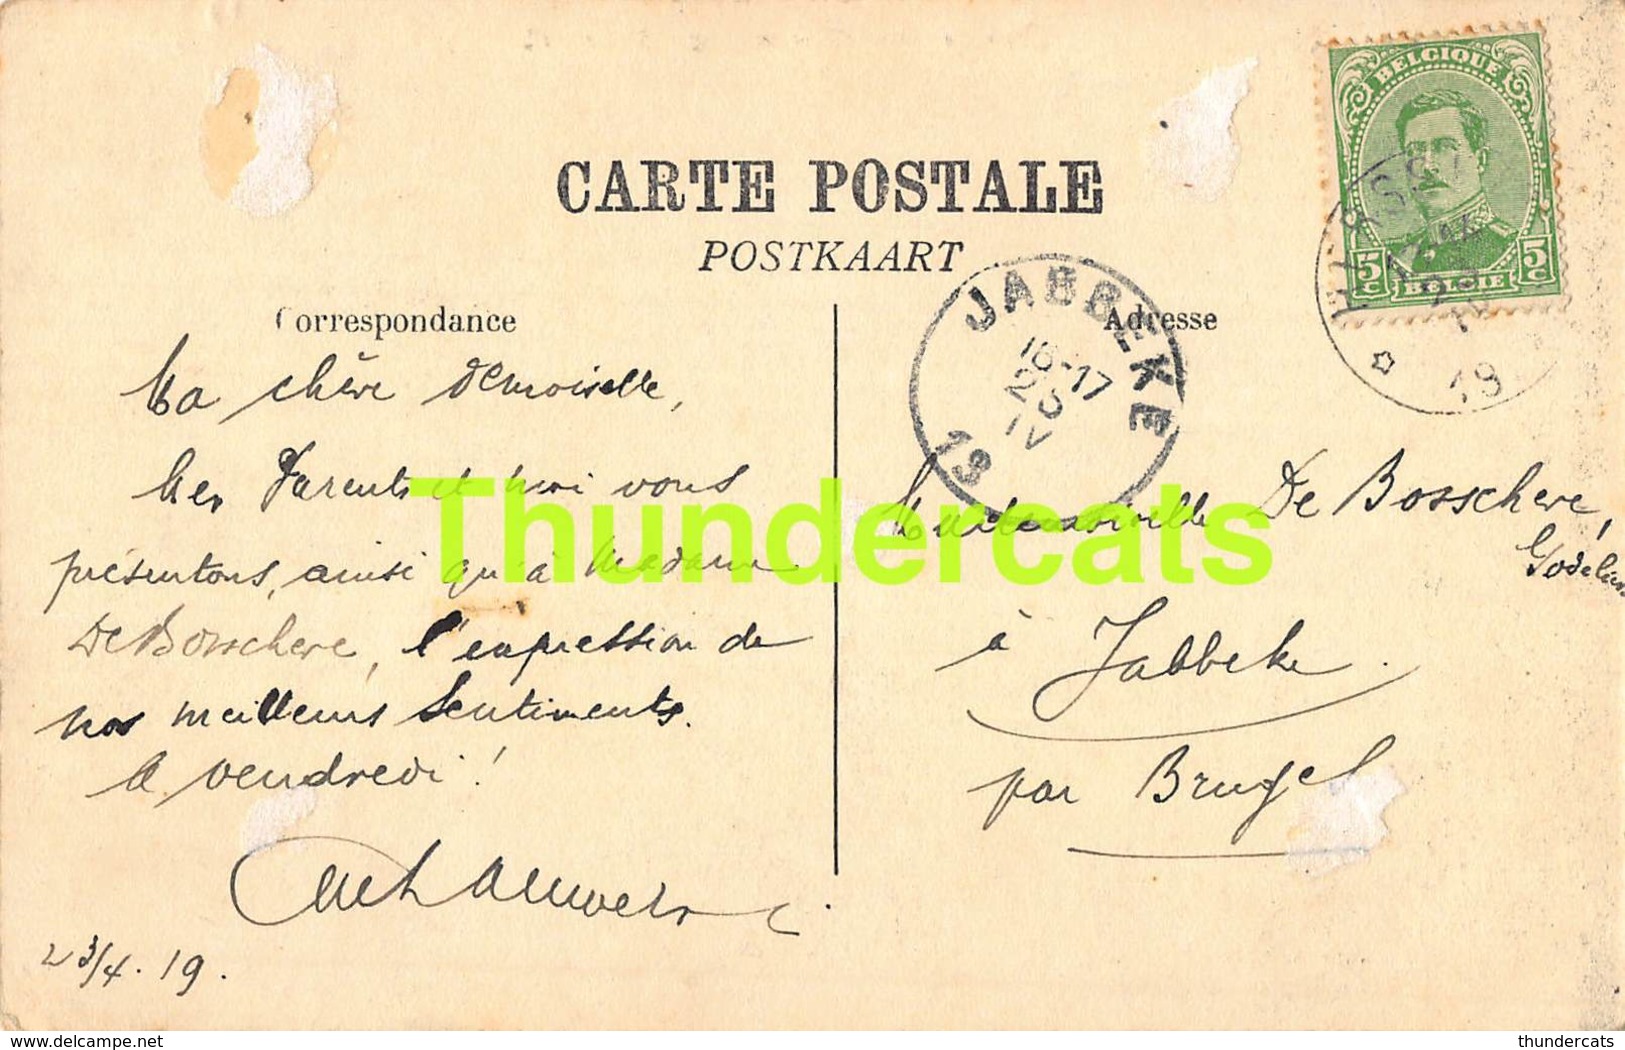 CARTE POSTALE
POSTKAART
Correspondance
Adresse
BELGIQUE
5c BELGIE 5c
JABBEKE
16-17
IV
19
19
Ma chère Demoiselle,
Mes Parents et moi vous
présentons, ainsi qu'à Madame
De Bosschere, l'expression de
nos meilleurs sentiments.
A vendredi!
23/4.19.
Mademoiselle De Bosschere,
à Jabbeke.
par Bruges
Thundercats
delcampe.net
thundercats